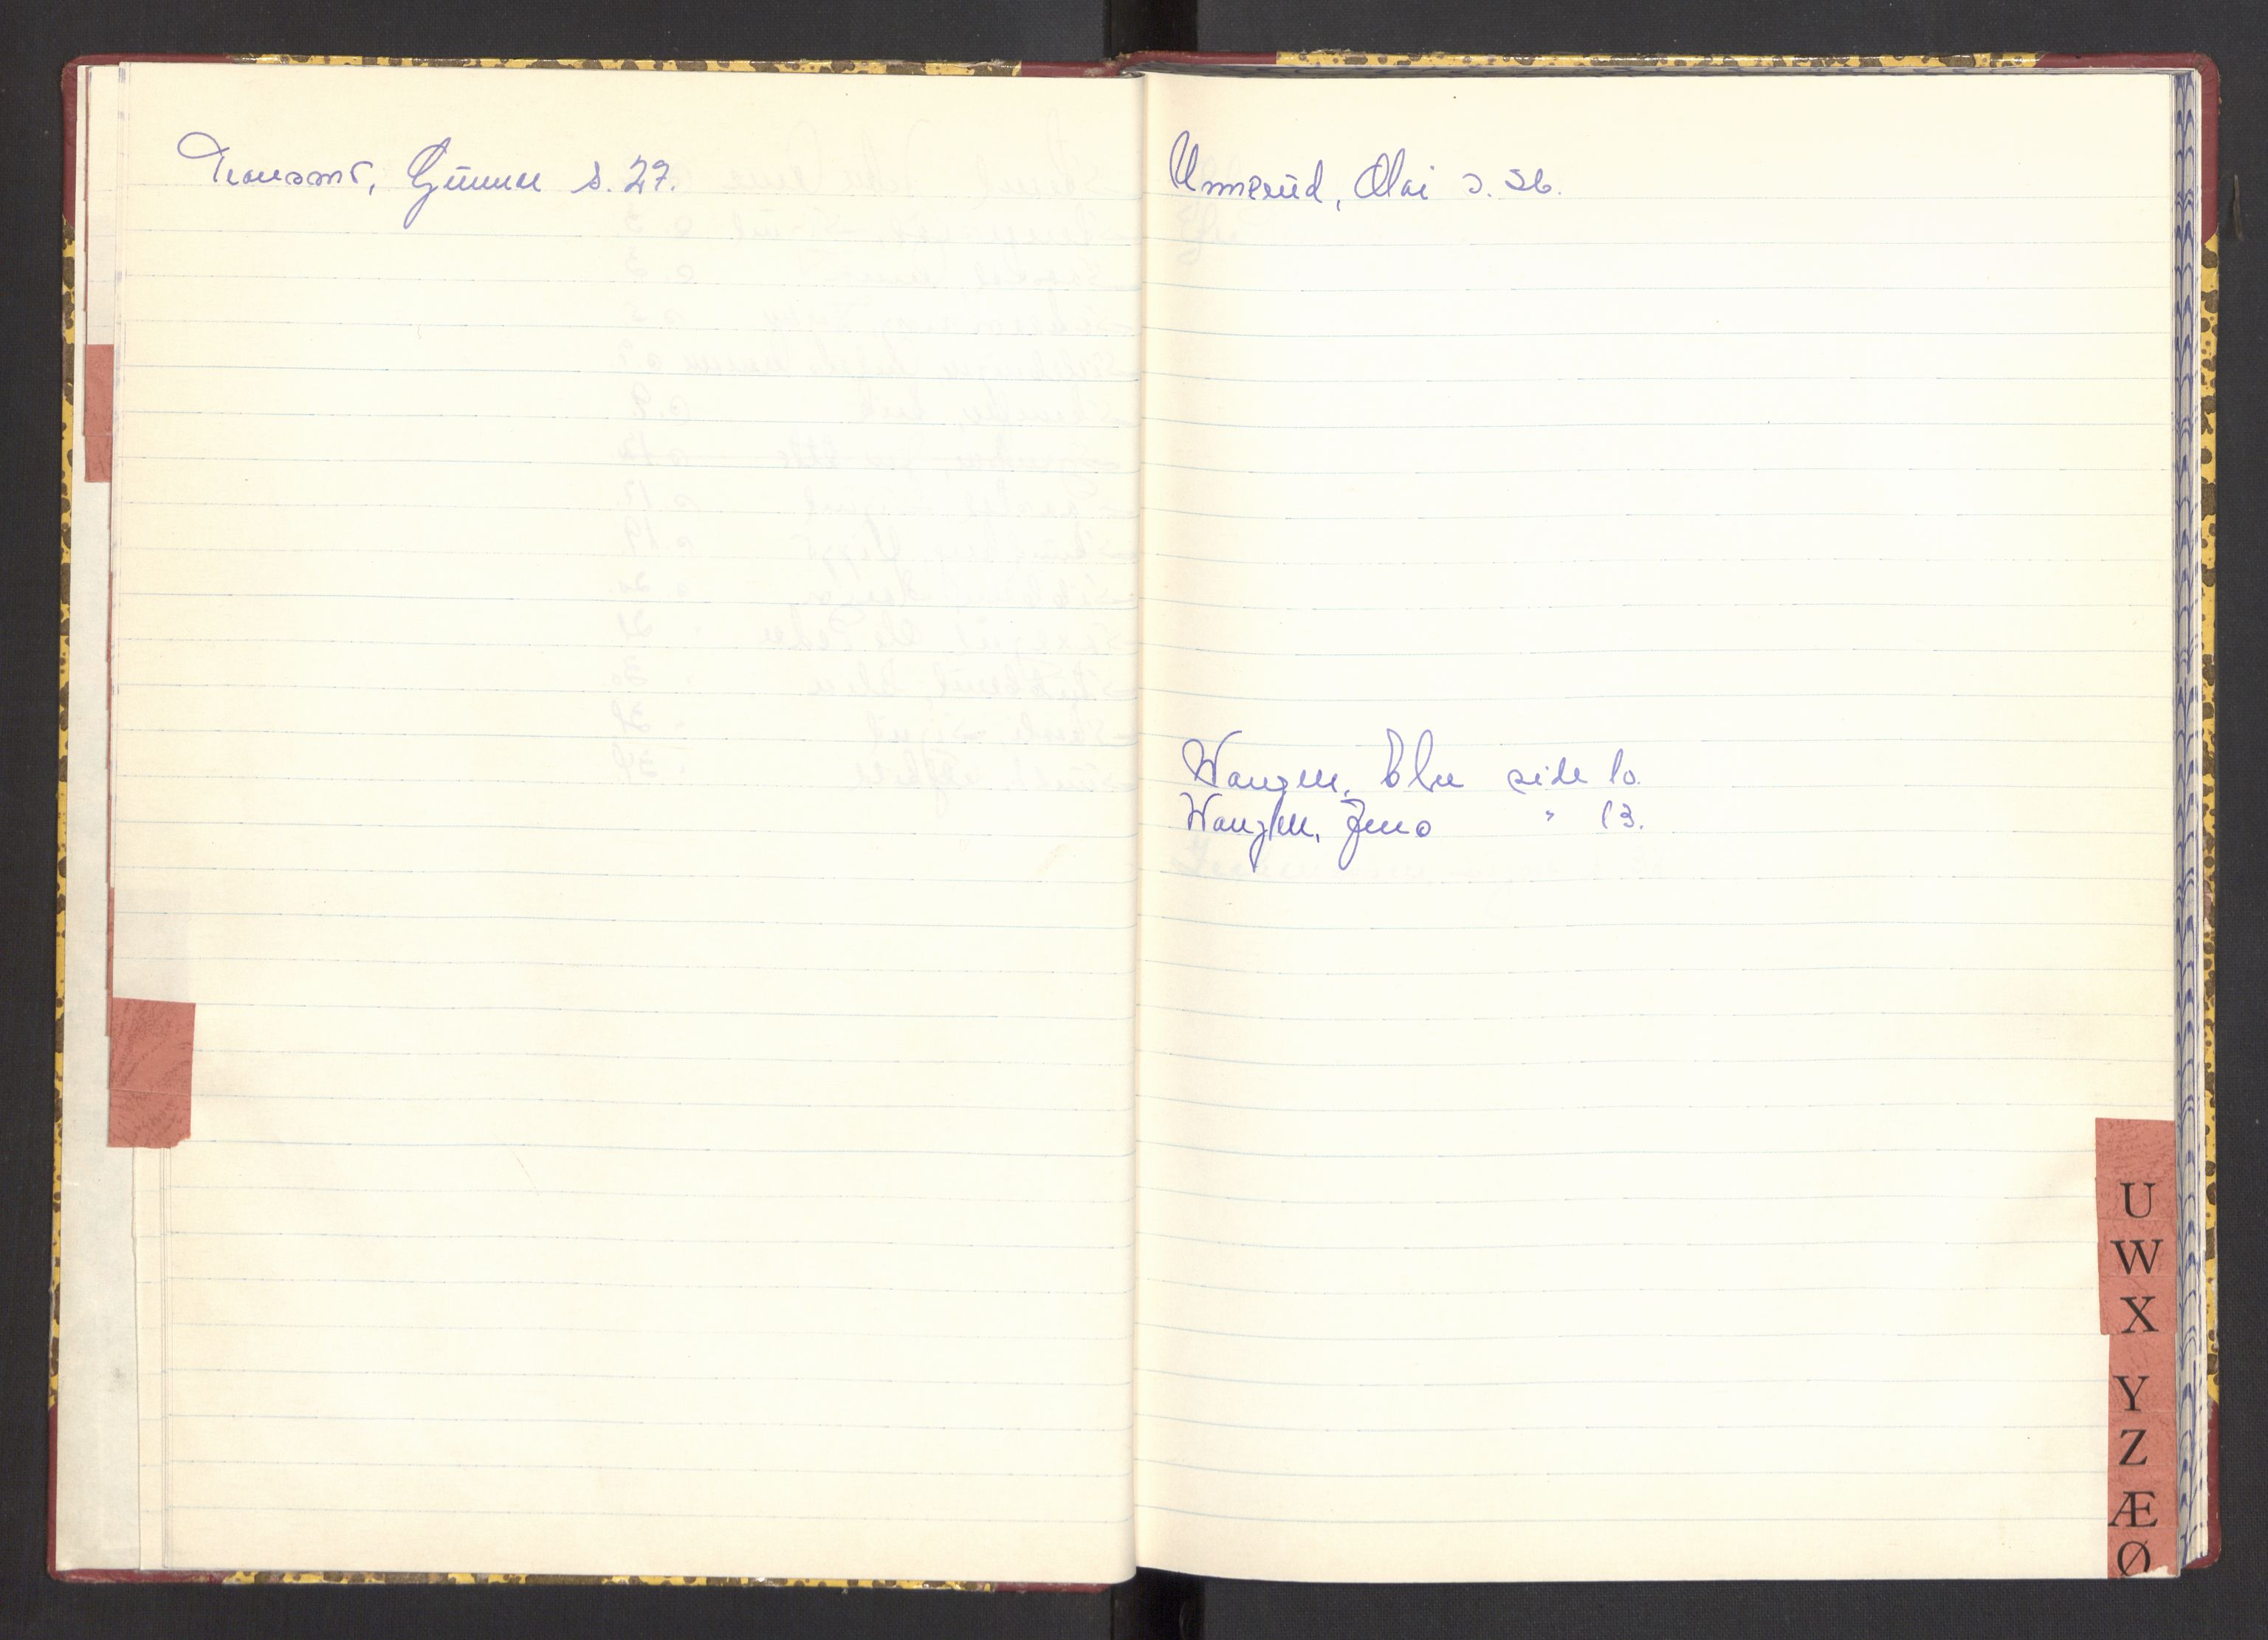 Gunnar s. 27.
Unnerud, Olai s. 36.
Wangen, Elen side 10.
Wangen, Jens " 13.
U
W
X
Y
Z
Æ
Ø